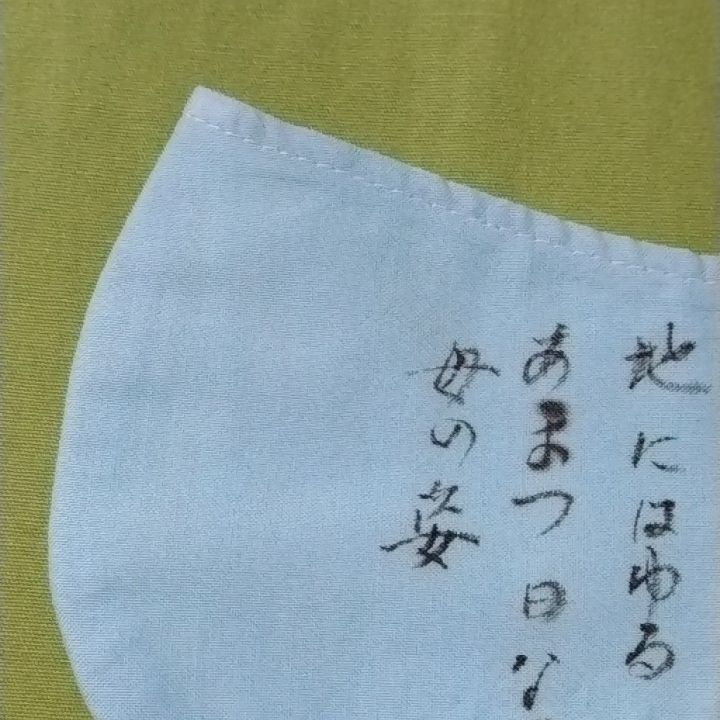 地にはゆる
あまつ日な
母の姿